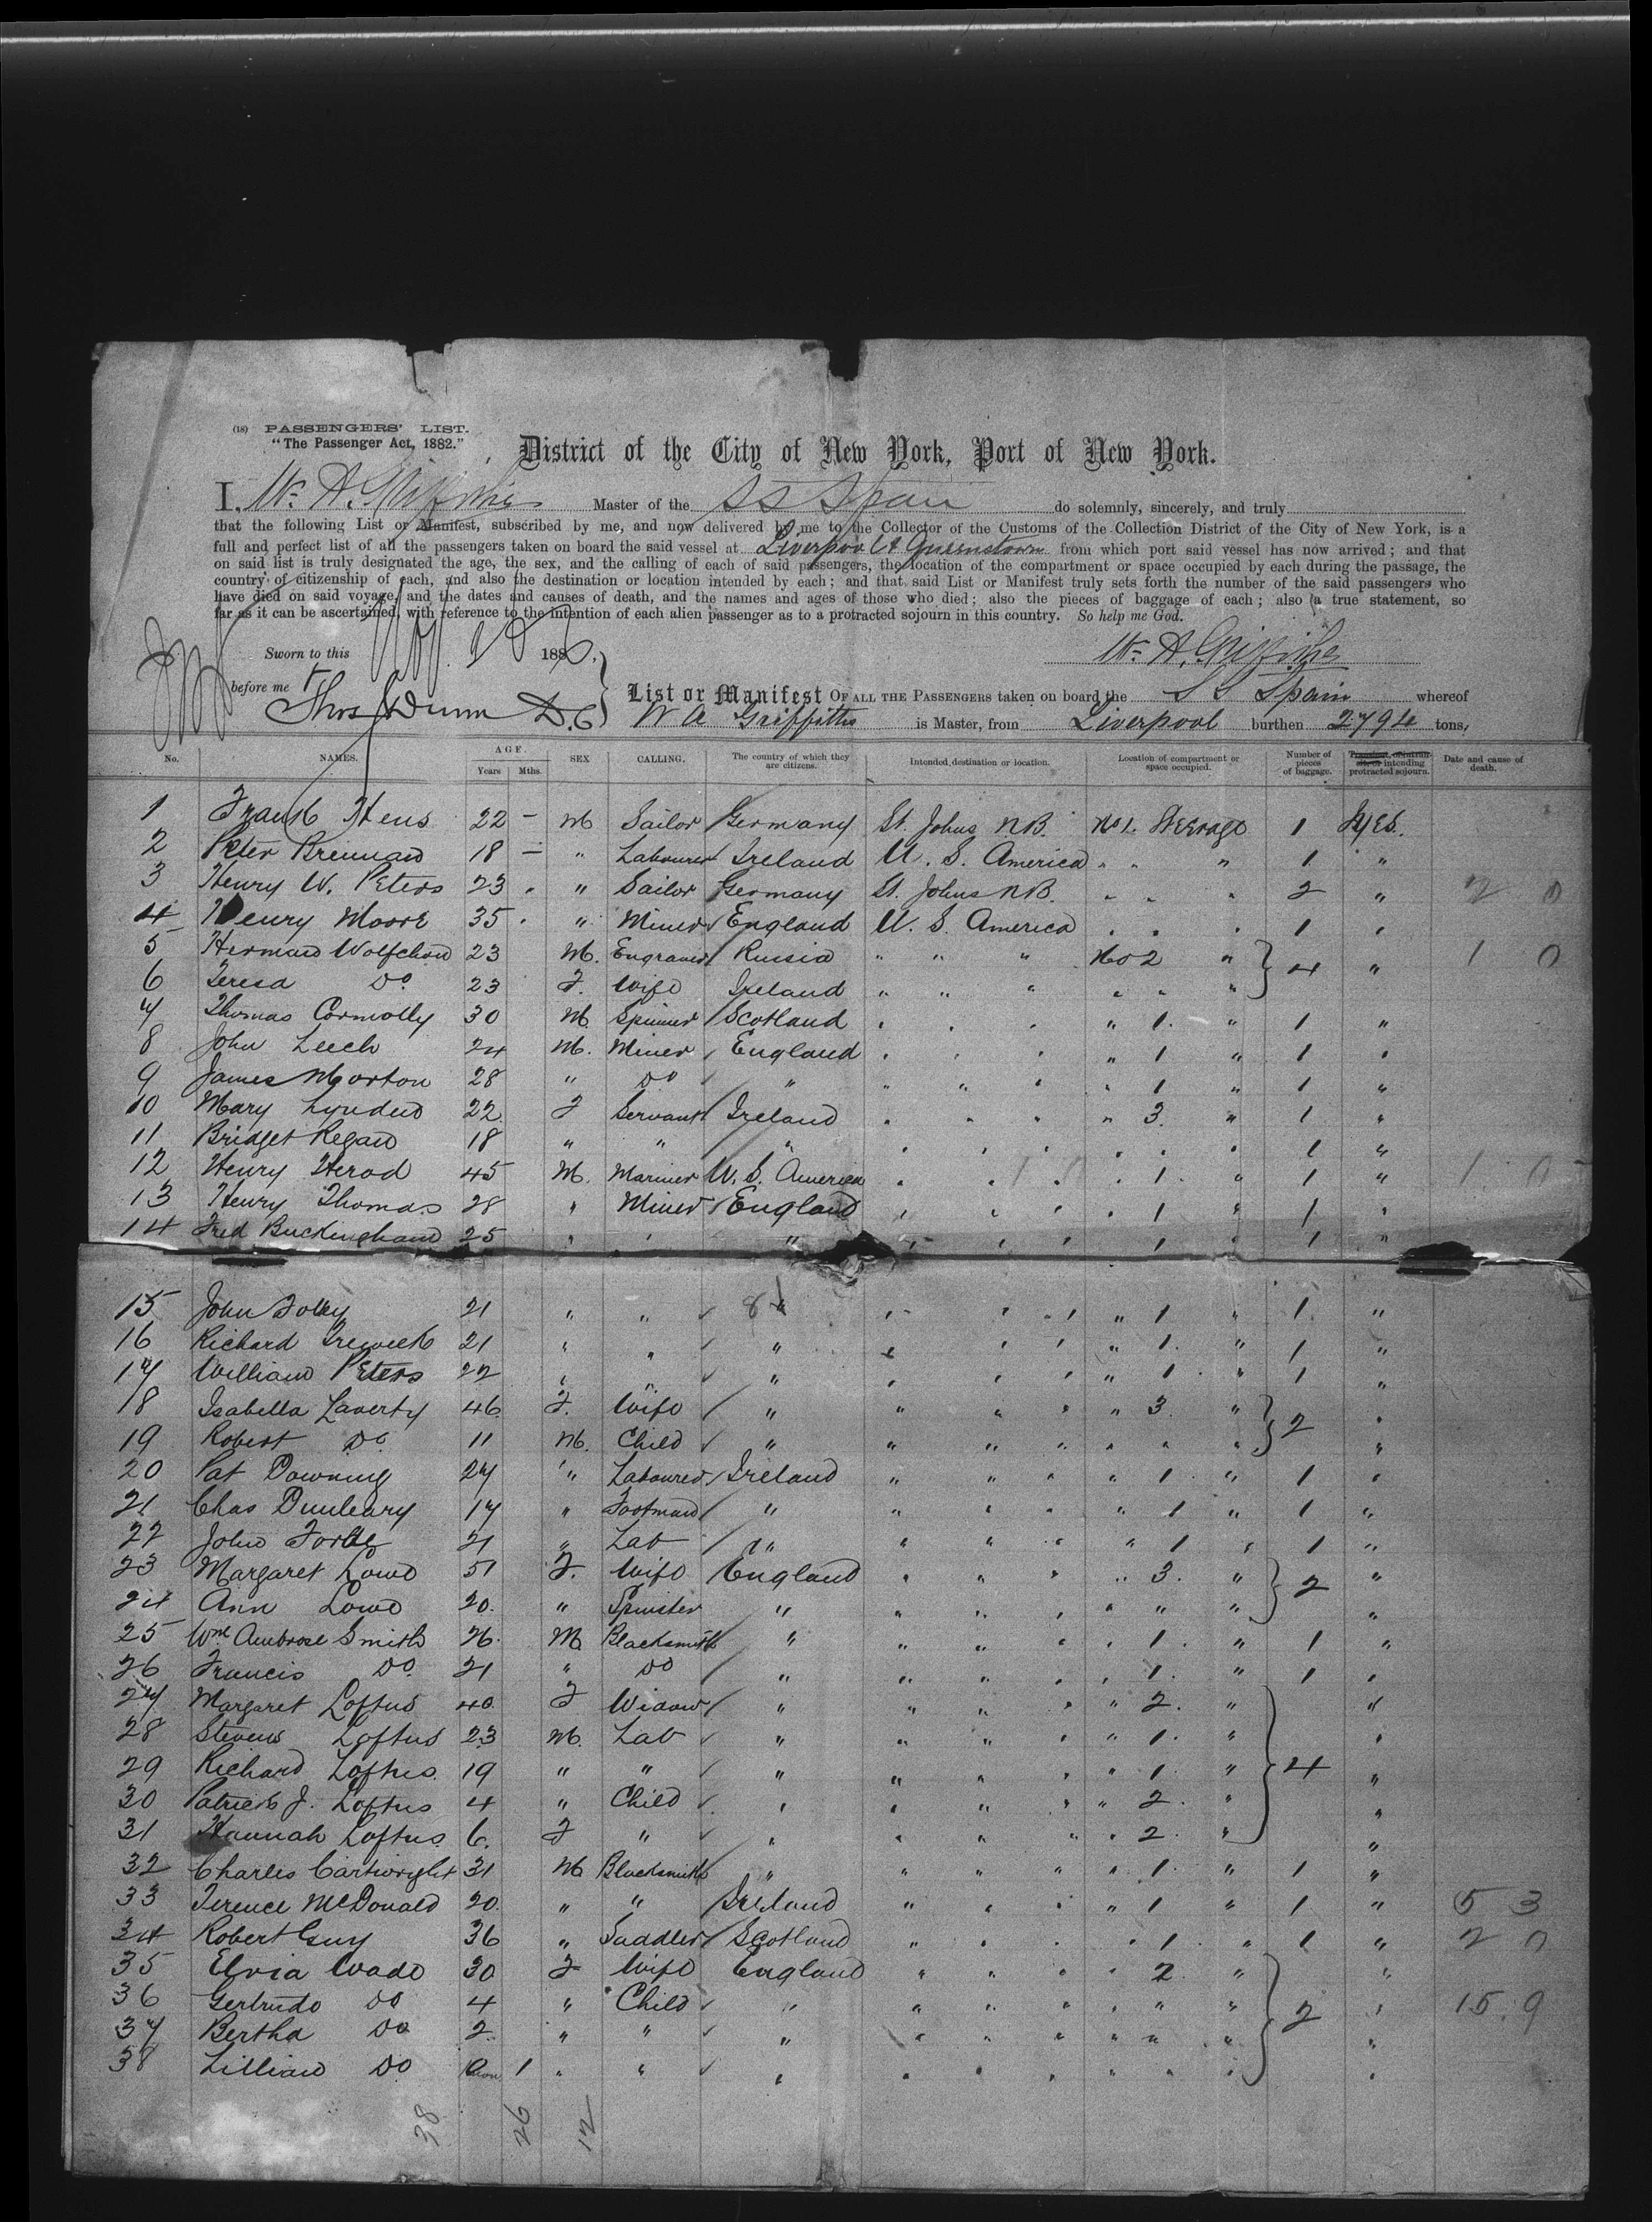 (18) PASSENGERS' LIST.
"The Passenger Act, 1882."
District of the City of New York, Port of New York.
I, W. A. Griffiths Master of the SS Spain do solemnly, sincerely, and truly
that the following List or Manifest, subscribed by me, and now delivered by me to the Collector of the Customs of the Collection District of the City of New York, is a
full and perfect list of all the passengers taken on board the said vessel at Liverpool & Queenstown from which port said vessel has now arrived; and that
on said list is truly designated the age, the sex, and the calling of each of said passengers, the location of the compartment or space occupied by each during the passage, the
country of citizenship of each, and also the destination or location intended by each; and that said List or Manifest truly sets forth the number of the said passengers who
have died on said voyage, and the dates and causes of death, and the names and ages of those who died; also the pieces of baggage of each; also a true statement, so
far as it can be ascertained, with reference to the intention of each alien passenger as to a protracted sojourn in this country. So help me God.
W. A. Griffiths
Sworn to this 188
before me
Thos J Dunn D.C.
List or Manifest OF ALL THE PASSENGERS taken on board the S S Spain whereof
W A Griffiths is Master, from Liverpool burthen 2794 tons,
No. NAMES. AGE. Years Mths. SEX CALLING. The country of which they are citizens. Intended destination or location. Location of compartment or space occupied. Number of pieces of baggage. intending protracted sojourn. Date and cause of death.
1 Frank Hens 22 – M Sailor Germany St. Johns N.B. No 1. Steerage 1 Yes.
2 Peter Brennan 18 – " Labourer Ireland U. S. America " " " 1 "
3 Henry W. Peters 23 " Sailor Germany St. Johns N.B. " " " 2 " 2 0
4 Henry Moore 35 " Miner England U. S. America " " " 1 "
5 Herman Wolfchon 23 M. Engraver Russia " " " No 2 " 4 " 1 0
6 Teresa Do 23 F. Wife Ireland " " " " " "
7 Thomas Connolly 30 M Spinner Scotland " " " " 1. " 1 "
8 John Leech 24 M. Miner England " " " " 1 " 1 "
9 James Morton 28 " Do " " " " " 1 " 1 "
10 Mary Lynden 22 F Servant Ireland " " " " 3. " 1 "
11 Bridget Regan 18 " " " " " " " " " 1 "
12 Henry Herod 45 M. Mariner U. S. America " " " " 1. " 1 " 1 0
13 Henry Thomas 28 " Miner England " " " " 1 " 1 "
14 Fred Buckingham 25 " " " " " " " 1 " 1 "
15 John Foley 21 " " " " " " " 1 " 1 "
16 Richard Treweek 21 " " " " " " " 1. " 1 "
17 William Peters 22 " " " " " " " 1 " 1 "
18 Isabella Laverty 46 F. Wife " " " " " 3 " 2 "
19 Robert Do 11 M. Child " " " " " " " "
20 Pat Downing 27 " Labourer Ireland " " " " 1. " 1 "
21 Chas Dunleary 17 " Footman " " " " " 1 " 1 "
22 John 21 " Lab " " " " " 1 " 1 "
23 Margaret Lowe 51 F. Wife England " " " " 3. " 2 "
24 Ann Lowe 20 " Spinster " " " " " " " "
25 Wm Ambrose Smith 26 M Blacksmith " " " " " 1. " 1 "
26 Francis Do 21 " Do " " " " " 1. " 1 "
27 Margaret Loftus 40 F Widow " " " " " 2. " "
28 Steven Loftus 23 M. Lab " " " " " 1. " "
29 Richard Loftus 19 " " " " " " " 1. " 4 "
30 Patrick J. Loftus 4 " Child " " " " " 2. " "
31 Hannah Loftus 6. F " " " " " " 2. " "
32 Charles Cartwright 31 M Blacksmith " " " " " 1. " 1 "
33 Terence McDonald 20 " " Ireland " " " " 1 " 1 " 5 3
34 Robert Guy 36 " Saddler Scotland " " " " 1. " 1 " 2 0
35 Elvia Wade 30 F Wife England " " " " 2. " "
36 Gertrude Do 4 " Child " " " " " " " 2 " 15. 9
37 Bertha Do 2 " " " " " " " " " "
38 Lillian Do 1 " " " " " " " " " "
38 26 12